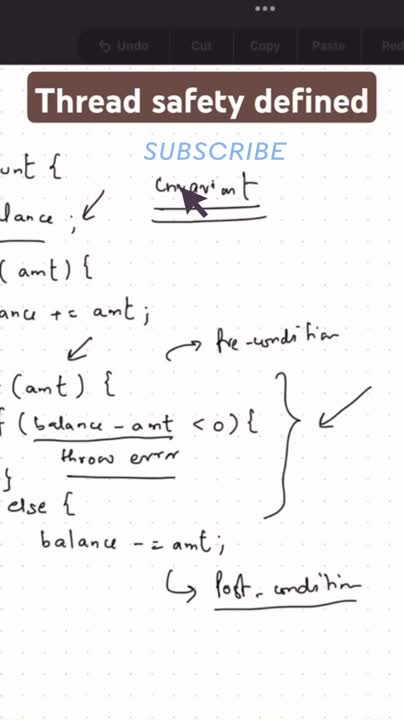 Undo Cut Copy Paste Red
Thread safety defined
SUBSCRIBE
unt {
lance ;
( amt) {
ance += amt;
Pre-condition
(amt) {
f (balance - amt < 0) {
throw error
}
else {
balance -= amt;
Post-condition